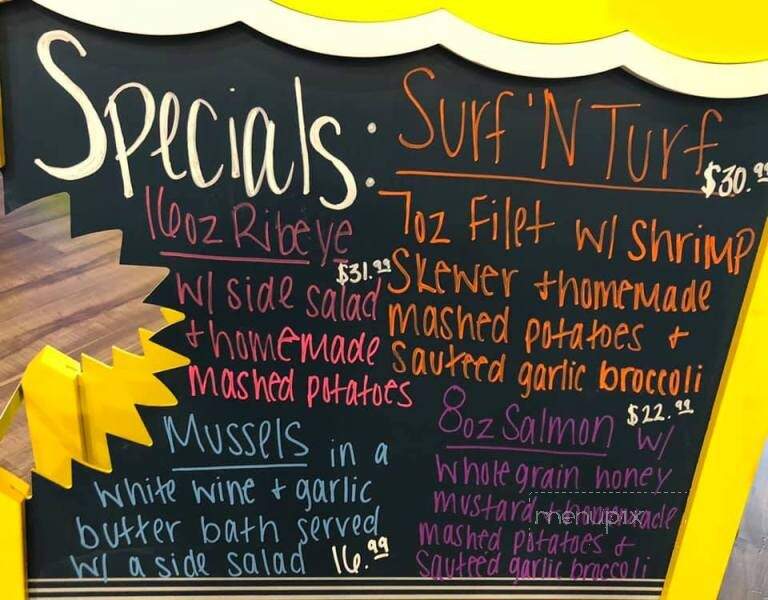 Specials:
16oz Ribeye
$31.99
w/ side salad
+ homemade
mashed potatoes
Surf 'N Turf
$30.99
7oz Filet w/ shrimp
Skewer + homemade
mashed potatoes +
sauteed garlic broccoli
Mussels in a
white wine + garlic
butter bath served
w/ a side salad 16.99
8oz Salmon w/
$22.99
whole grain honey
mustard + homemade
mashed potatoes +
sauteed garlic broccoli
menupix